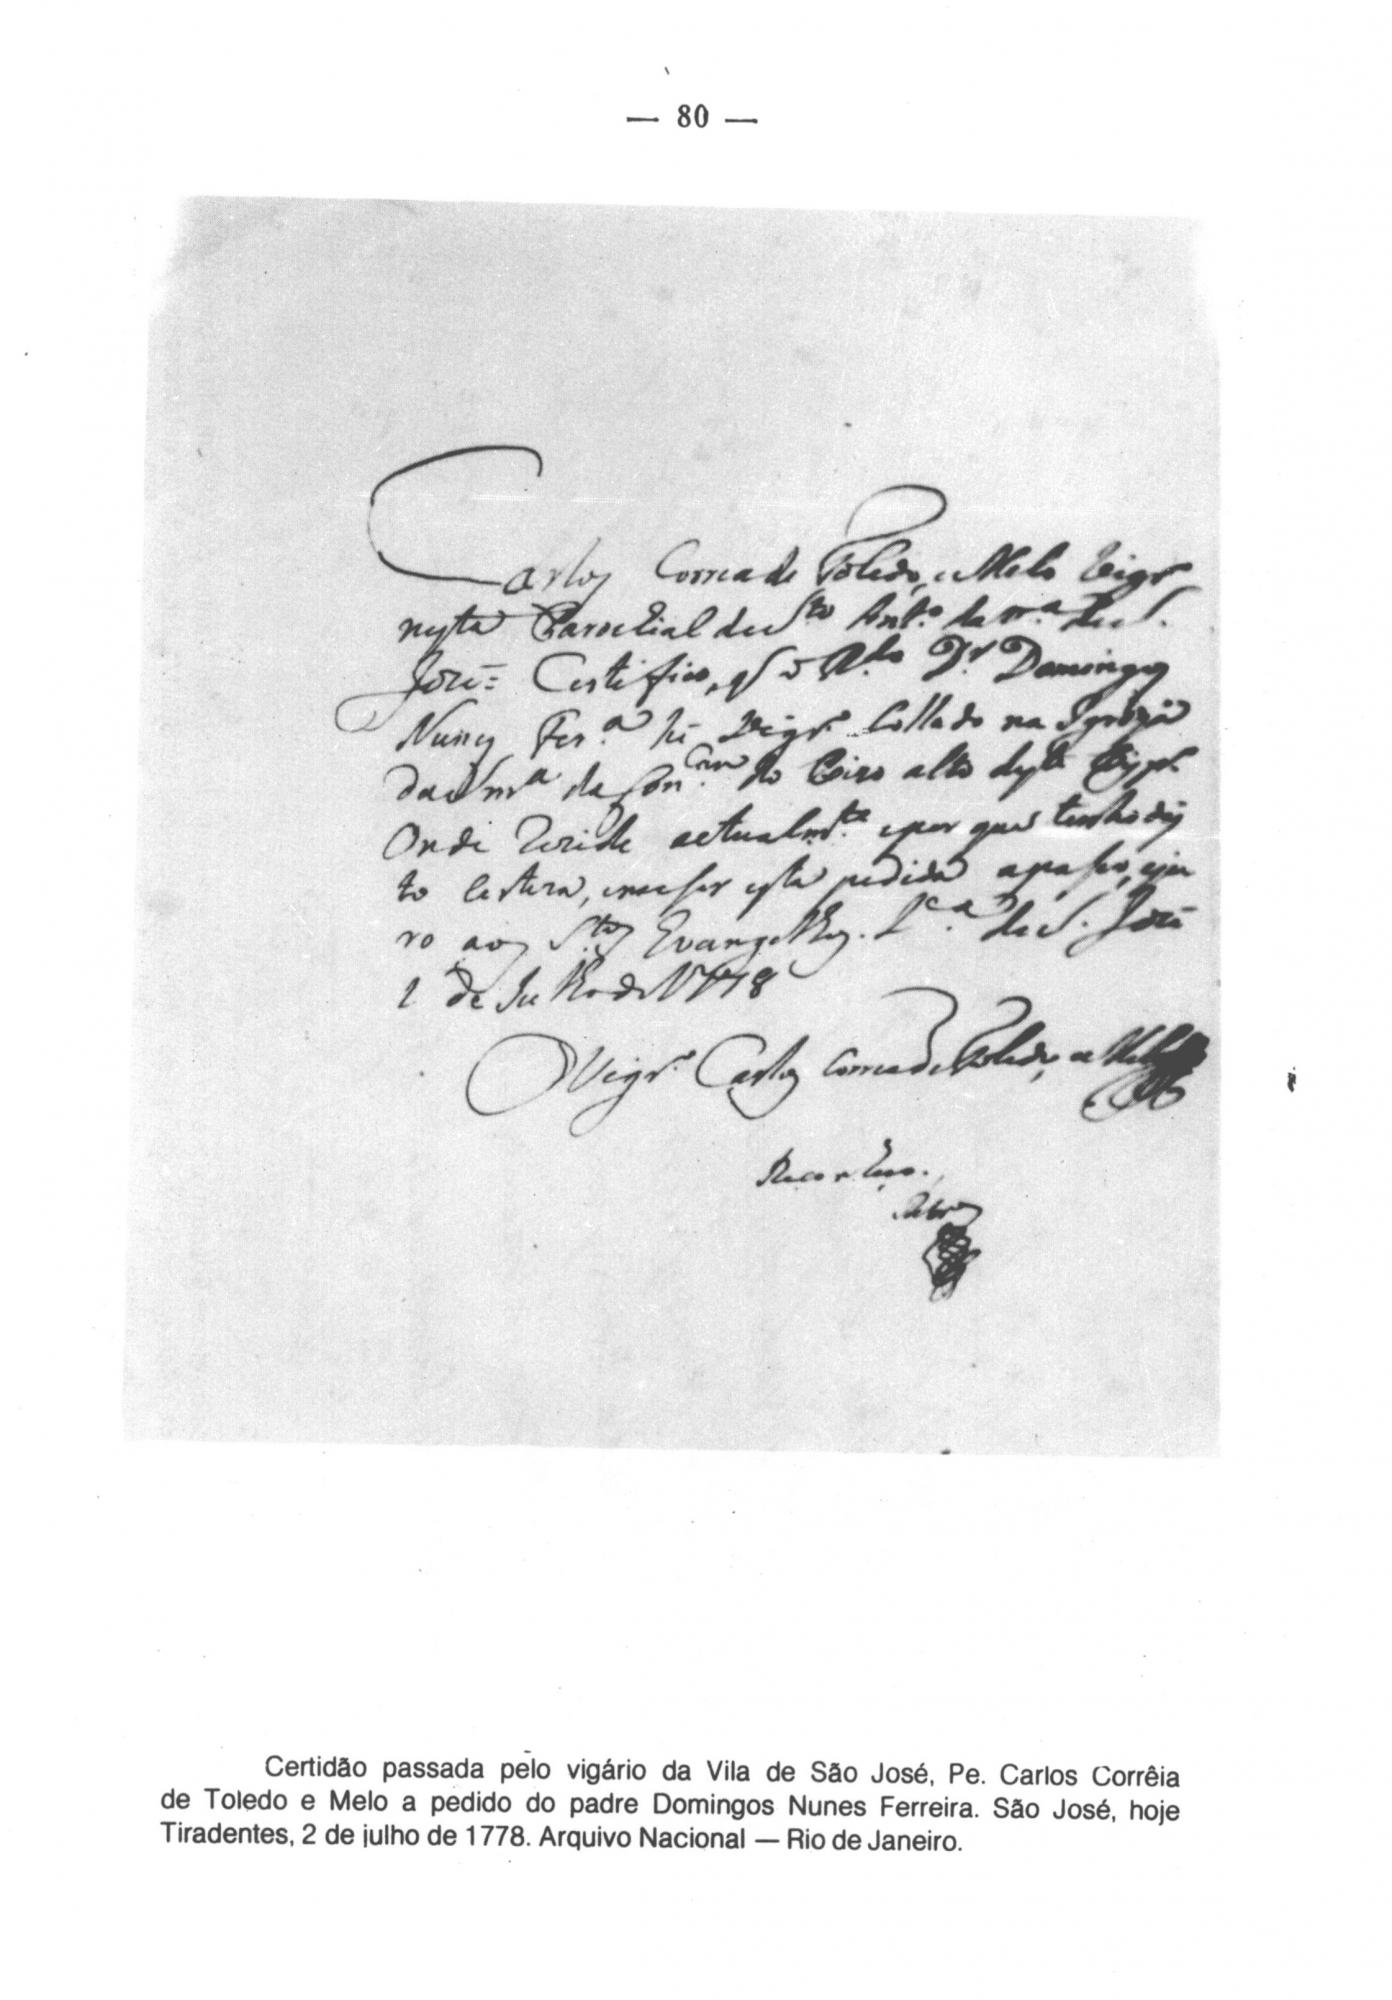 — 80 —
Carlos Correa de Toledo, e Melo Vigr.º
nesta Parochial de S.to Ant.º da V.ª de S.
José = Certifico, q̃ o R.do D.r Domingos
Nunes Fer.ª hé Vigr.º Collado na Igreja
da Snr.ª da Con.cam do
Onde rezide actualm.te e por que tenho dis
to certeza, e me ser esta pedida a passo, e ju
ro aos S.tos Evangelhos. V.ª de S. José
2 de Julho de 1778
O Vigr.º Carlos Correa de Toledo, e Mello
Certidão passada pelo vigário da Vila de São José, Pe. Carlos Corrêia
de Toledo e Melo a pedido do padre Domingos Nunes Ferreira. São José, hoje
Tiradentes, 2 de julho de 1778. Arquivo Nacional — Rio de Janeiro.